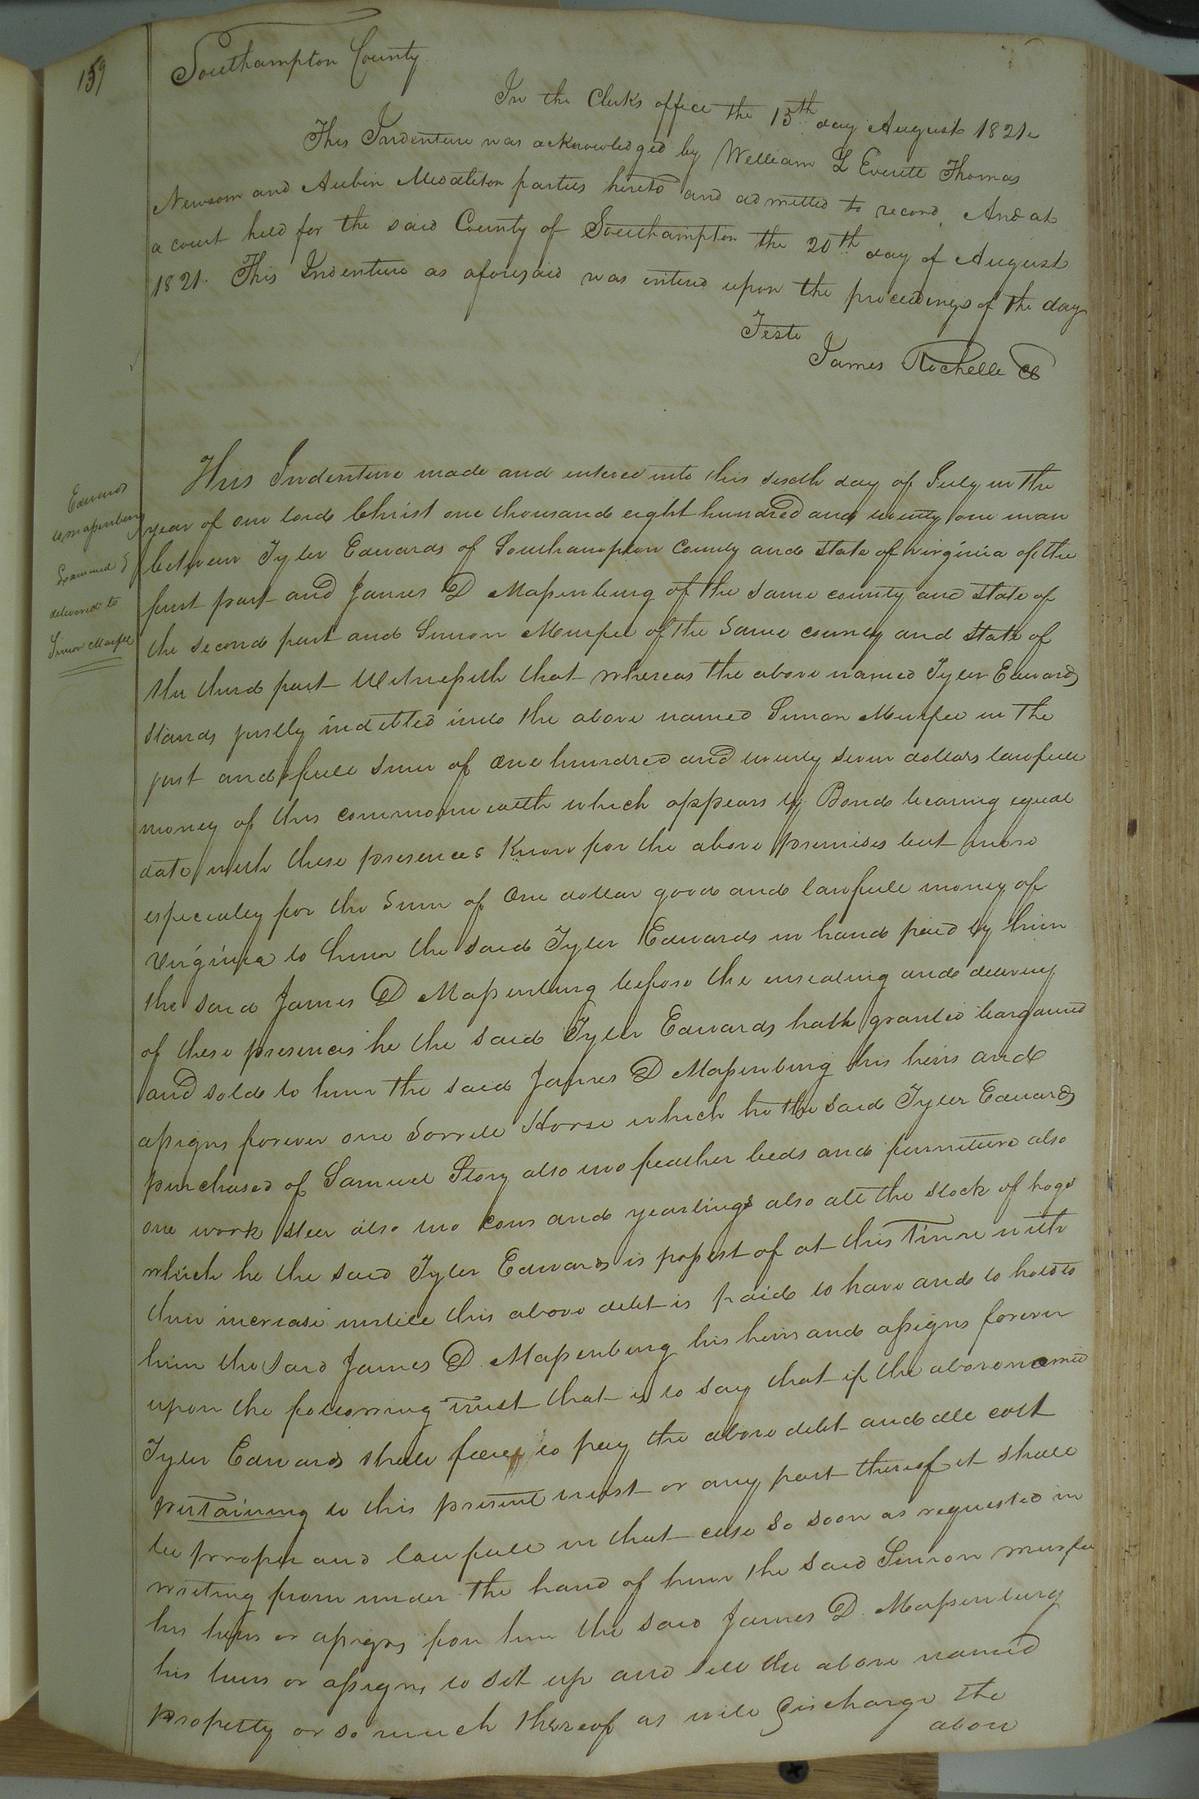 159
Southampton County
In the Clerks office the 15th day August 1821
This Indenture was acknowledged by William L Everitt Thomas
Newsom and Aubin Middleton parties hereto and admitted to record. And at
a court held for the said County of Southampton the 20th day of August
1821. This Indenture as aforesaid was entered upon the proceedings of the day
Teste
James Rochelle
Edwards
to Massenburg
Examined &
delivered to
Simon Murfee
This Indenture made and entered into this sixth day of July in the
year of our lord Christ one thousand eight hundred and twenty one
between Tyler Edwards of Southampton County and State of Virginia of the
first part and James D Massenburg of the same county and State of
the second part and Simon Murfee of the same county and State of
the third part Witnesseth that whereas the above named Tyler Edwards
stands justly indetted unto the above named Simon Murfee in the
just and full sum of One hundred and twenty seven dollars lawfull
money of this commonwealth which appears by Bond bearing equal
date with these presences Know for the above premises but more
especialey for the Sum of One dollar good and lawfull money of
Virginia to him the said Tyler Edwards in hand paid by him
the said James D Massenburg before the ensealing and delivery
of these presences he the said Tyler Edwards hath granted bargained
and sold to him the said James D Massenburg his heirs and
assigns forever one Sorrell Horse which he the said Tyler Edwards
purchased of Samuel Story also two feather beds and furniture also
one work steer also two cows and yearlings also all the stock of hogs
which he the said Tyler Edwards is possest of at this Time with
their increase untill this above debt is paid to have and to hold to
him the said James D. Massenburg his heirs and assigns forever
upon the following trust that is to say that if the abovenamed
Tyler Edwards shall to pay the above debt and all cost
pertaining to this present trust or any part thereof it shall
be proper and lawfull in that case so soon as requested in
writing from under the hand of him the said Simon murfee
his heirs or assigns for him the said James D. Massenburg
his heirs or assigns to set up and sell the above named
property or so much thereof as will Discharge the
above